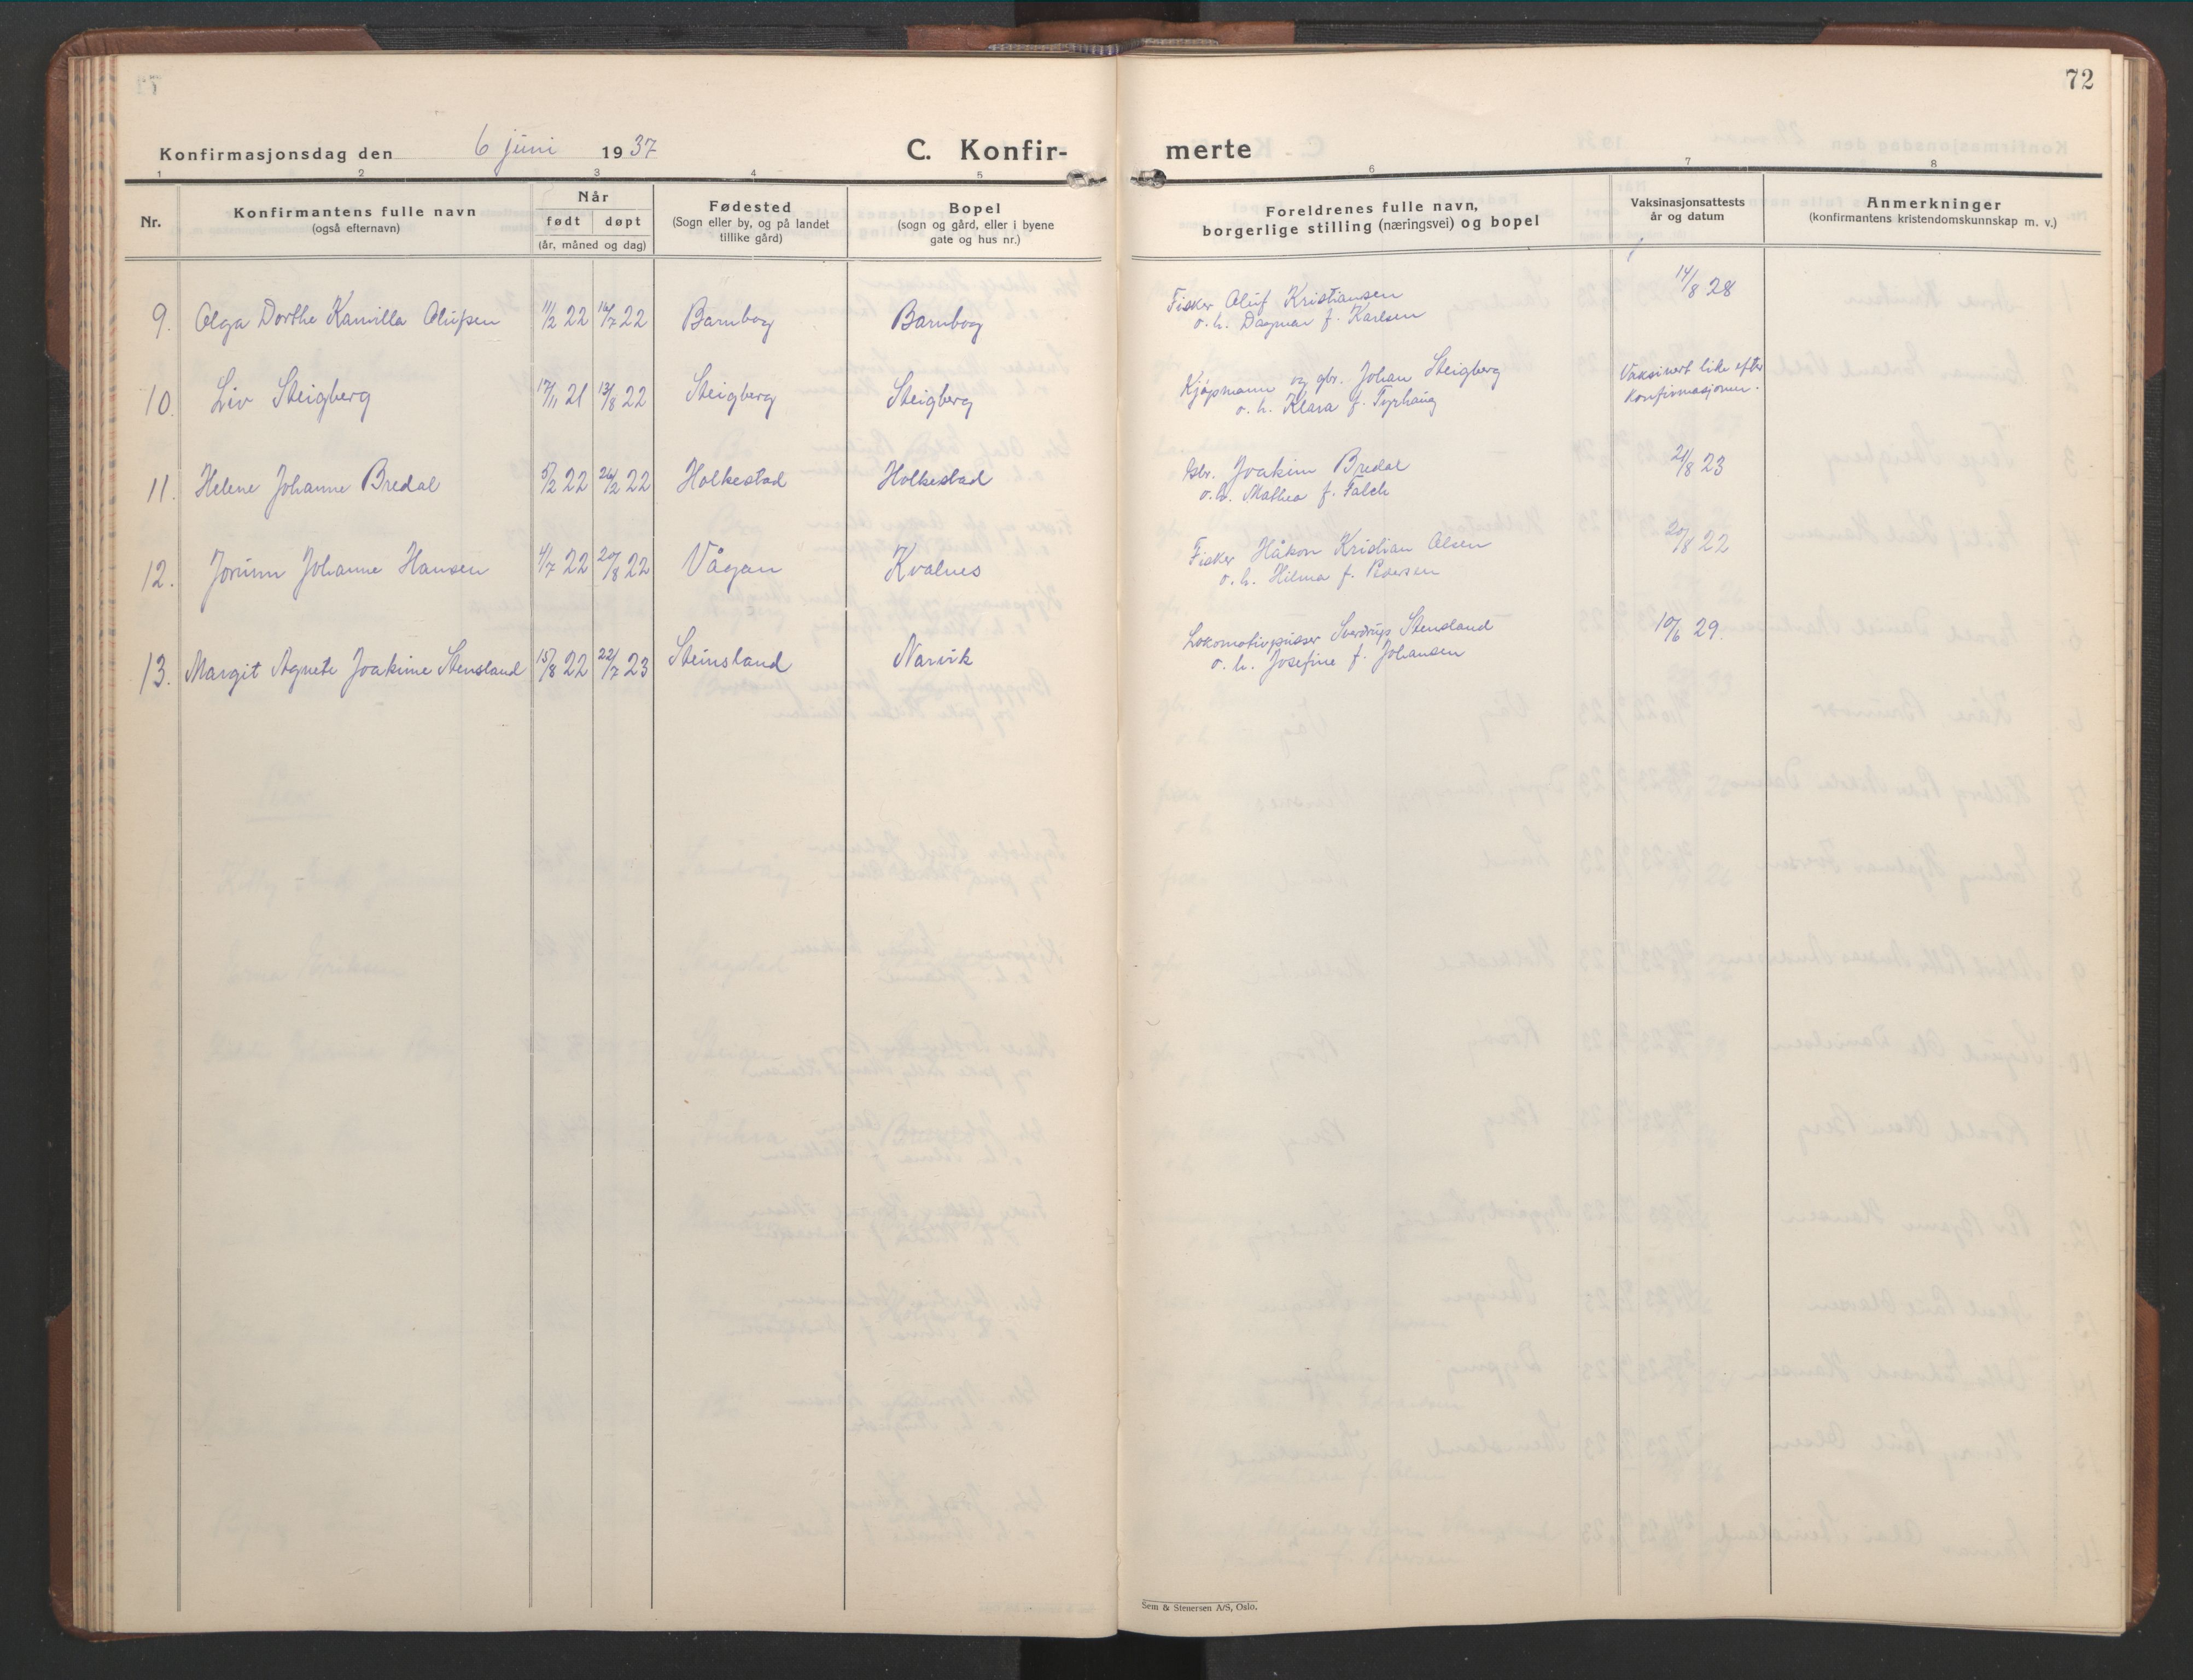 72
Konfirmasjonsdag den 6 juni 1937
C. Konfir-
merte
1 2 3 4 5 6 7 8
Nr.
Konfirmantens fulle navn
(også efternavn)
Når
født døpt
(år, måned og dag)
Fødested
(Sogn eller by, og på landet
tillike gård)
Bopel
(sogn og gård, eller i byene
gate og hus nr.)
Foreldrenes fulle navn,
borgerlige stilling (næringsvei) og bopel
Vaksinasjonsattests
år og datum
Anmerkninger
(konfirmantens kristendomskunnskap m. v.)
9. Olga Dorthe Kamilla Olufsen 11/2 22 16/7 22 Barnbog Barnbog
Fisker Oluf Kristiansen 14/8 28
o. h. Dagmar f. Karlsen
10. Liv Steigberg 17/11 21 13/8 22 Steigberg Steigberg
Kjøpmann og gbr. Johan Steigberg
o. h. Klara f. Tyrhaug
Vaksinert like efter
konfirmasjonen.
11. Helene Johanne Bredal 5/2 22 26/2 22 Holkestad Holkestad
Gbr. Joakim Bredal 21/8 23
o. h. Mathea f. Falch
12. Jorunn Johanne Hansen 4/7 22 20/8 22 Vågan Kvalnes
Fisker Håkon Kristian Olsen 20/8 22
o. h. Hilma f. Pedersen
13. Margit Agnete Joakime Stensland 15/8 22 22/7 23 Steinsland Narvik
Lokomotivpusser Sverdrup Stensland 10/6 29.
o. h. Josefine f. Johansen
Sem & Stenersen A/S, Oslo.